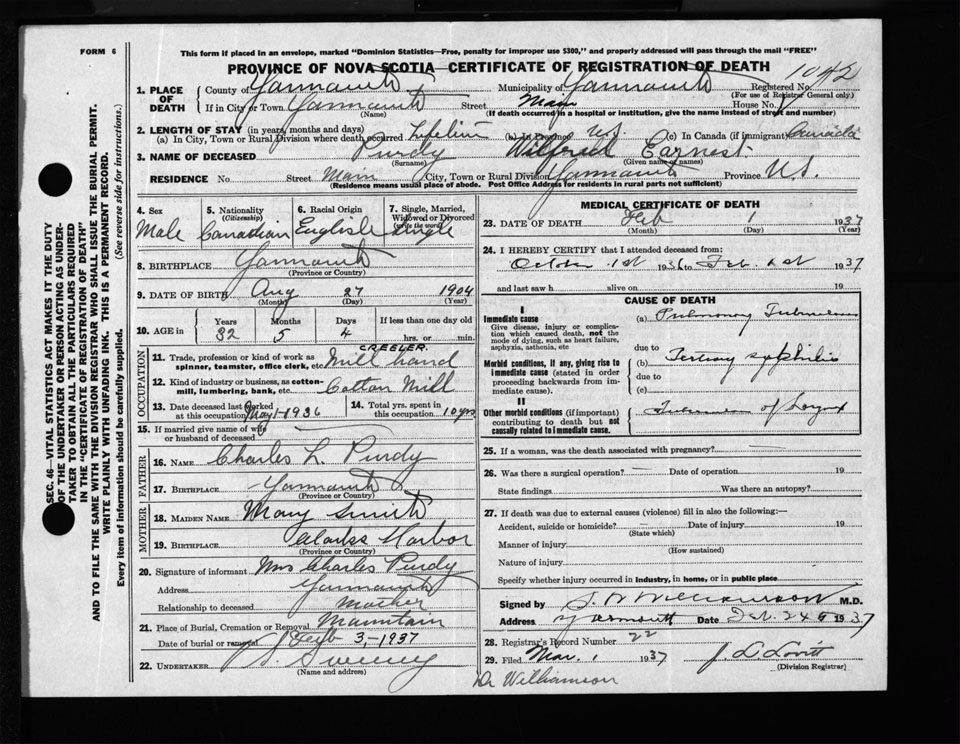 FORM 6
This form if placed in an envelope, marked "Dominion Statistics—Free, penalty for improper use $300," and properly addressed will pass through the mail "FREE"
PROVINCE OF NOVA SCOTIA—CERTIFICATE OF REGISTRATION OF DEATH
1042
1. PLACE OF DEATH
County of Yarmouth Municipality of Yarmouth Registered No.
(For use of Registrar General only)
If in City or Town Yarmouth Street Main House No.
(Name) (If death occurred in a hospital or institution, give name instead of street and number)
2. LENGTH OF STAY (in years, months and days)
(a) In City, Town or Rural Division where death occurred Lifetime (b) In Province N.S. (c) In Canada (if immigrant) Canada
3. NAME OF DECEASED Purdy Wilfred Earnest
(Surname) (Given name or names)
RESIDENCE No. Street Main City, Town or Rural Division Yarmouth Province N.S.
(Residence means usual place of abode. Post Office Address for residents in rural parts not sufficient)
4. Sex Male
5. Nationality (Citizenship) Canadian
6. Racial Origin English
7. Single, Married, Widowed or Divorced (write the word) Single
8. BIRTHPLACE Yarmouth
(Province or Country)
9. DATE OF BIRTH Aug 27 1904
(Month) (Day) (Year)
10. AGE in Years Months Days If less than one day old
32 5 4 hrs. or min.
11. Trade, profession or kind of work as spinner, teamster, office clerk, etc. CREELER. Mill hand
12. Kind of industry or business, as cotton-mill, lumbering, bank, etc. Cotton Mill
13. Date deceased last worked at this occupation May 1-1936
14. Total yrs. spent in this occupation 10 yrs
OCCUPATION
15. If married give name of wife or husband of deceased
FATHER
16. NAME Charles L. Purdy
17. BIRTHPLACE Yarmouth
(Province or Country)
MOTHER
18. MAIDEN NAME Mary Smith
19. BIRTHPLACE Clarks Harbor
(Province or Country)
20. Signature of informant Mrs Charles Purdy
Address Yarmouth
Relationship to deceased Mother
21. Place of Burial, Cremation or Removal Mountain
Date of burial or removal Feb 3-1937
22. UNDERTAKER Sweeny
(Name and address)
MEDICAL CERTIFICATE OF DEATH
23. DATE OF DEATH Feb 1 1937
(Month) (Day) (Year)
24. I HEREBY CERTIFY that I attended deceased from:
October 1st 1936 to Feb. 1st 1937
and last saw h alive on 19
CAUSE OF DEATH
I
Immediate cause
Give disease, injury or complication which caused death, not the mode of dying, such as heart failure, asphyxia, asthenia, etc
(a) Pulmonary Tuberculosis
due to
Morbid conditions, if any, giving rise to immediate cause (stated in order proceeding backwards from immediate cause).
(b) Tertiary syphilis
due to
(c)
II
Other morbid conditions (if important) contributing to death but not causally related to immediate cause.
of Larynx
25. If a woman, was the death associated with pregnancy?
26. Was there a surgical operation? Date of operation 19
State findings Was there an autopsy?
27. If death was due to external causes (violence) fill in also the following:—
Accident, suicide or homicide? Date of injury 19
(State which)
Manner of injury
(How sustained)
Nature of injury
Specify whether injury occurred in industry, in home, or in public place
Signed by S. W. Williamson M.D.
Address Yarmouth Date Feb. 24 1937
28. Registrar's Record Number 22
29. Filed Mar. 1 1937 J. L. Lovitt
(Division Registrar)
Dr Williamson
SEC. 46—VITAL STATISTICS ACT MAKES IT THE DUTY
OF THE UNDERTAKER OR PERSON ACTING AS UNDER-
TAKER TO OBTAIN ALL THE PARTICULARS REQUIRED
IN THE "CERTIFICATE OF REGISTRATION OF DEATH"
AND TO FILE THE SAME WITH THE DIVISION REGISTRAR WHO SHALL ISSUE THE BURIAL PERMIT.
WRITE PLAINLY WITH UNFADING INK. THIS IS A PERMANENT RECORD.
Every item of information should be carefully supplied. (See reverse side for instructions.)